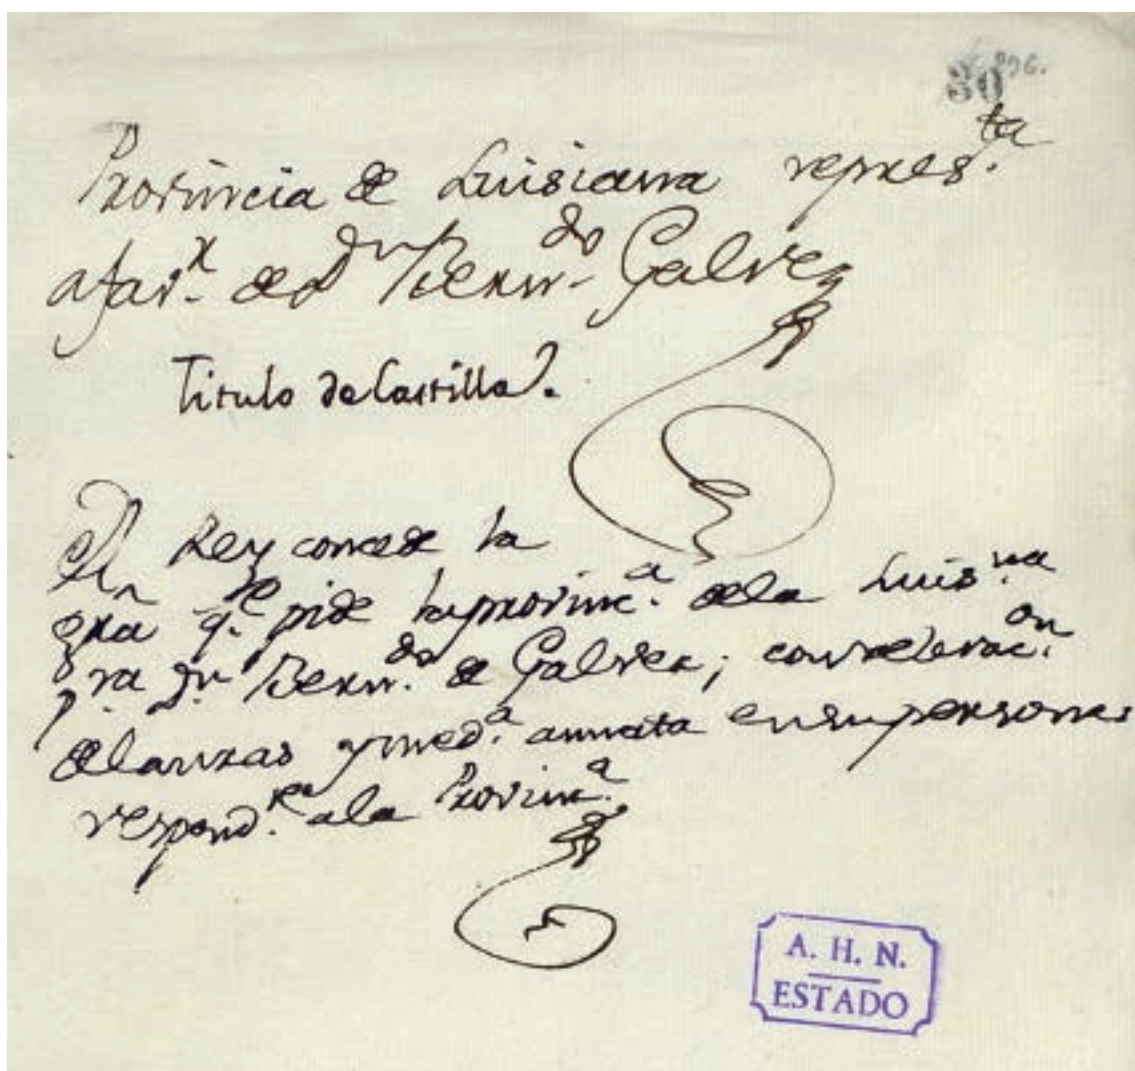 30
Provincia de Luisiana repres.ta
afav.r de Dn Bern.do Galvez
Titulo de Castilla.
El Rey concede la
gra q.e pide la provinc.a de la Luis.na
p.ra Dn. Bern.do de Galvez; con relevac.on
de lanzas y med.a annata en su persona
respond.se a la Provinc.a
A. H. N.
ESTADO